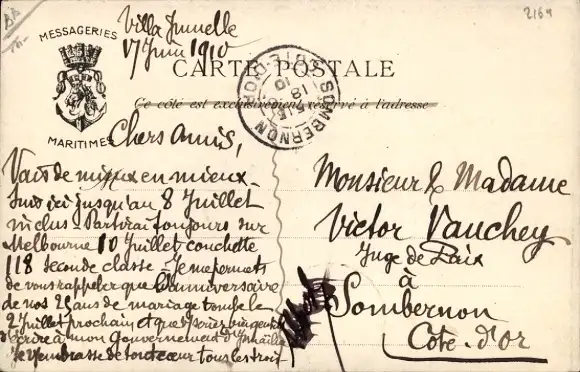 2169
MESSAGERIES
MARITIMES
Villa
17 Juin 1910
CARTE POSTALE
Ce côté est exclusivement réservé à l'adresse
SOMBERNON
CÔTE-D'OR
18
10
Chers Amis,
Vais de mieux en mieux.
Suis ici jusqu'au 8 Juillet
inclus - Partirai toujours sur
Melbourne 10 Juillet couchette
118 seconde classe - Je me permets
de vous rappeler que l'anniversaire
de nos 25 ans de mariage tombe le
2 Juillet prochain et que
d'écrire à mon Gouvernement d'
Je vous embrasse de tout cœur tous les trois
Monsieur & Madame
Victor Vauchey
Juge de Paix
à
Sombernon
Côte-d'Or